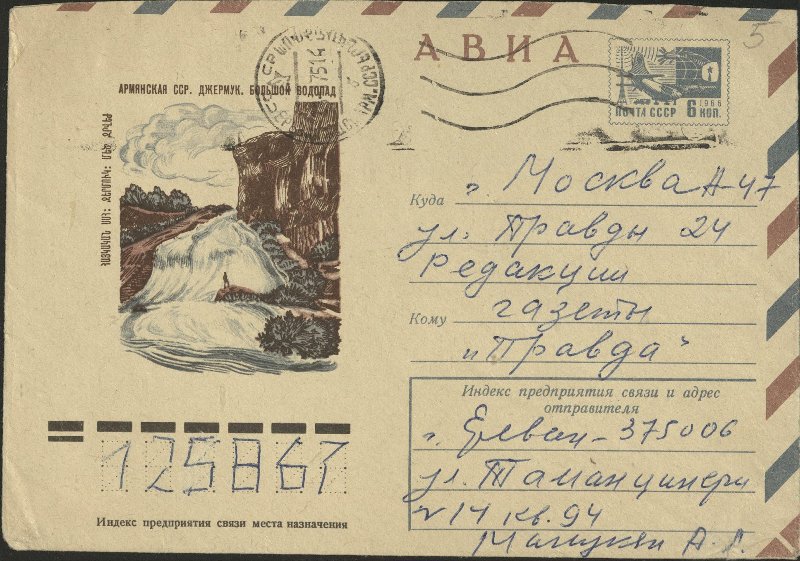 АВИА
5
1966
ПОЧТА СССР 6 КОП.
АРМЯНСКАЯ ССР. ДЖЕРМУК. БОЛЬШОЙ ВОДОПАД
ՀԱՅԿԱԿԱՆ ՍՍՀ: ՋԵՐՄՈՒԿ: ՄԵԾ ՋՐՎԵԺ
Куда г. Москва А-47
ул. Правды 24
Редакции
Кому газеты
"Правда"
Индекс предприятия связи и адрес
отправителя
г. Ереван-375006
ул. Таманцинери
№14 кв. 94
Манукян А.
125867
Индекс предприятия связи места назначения